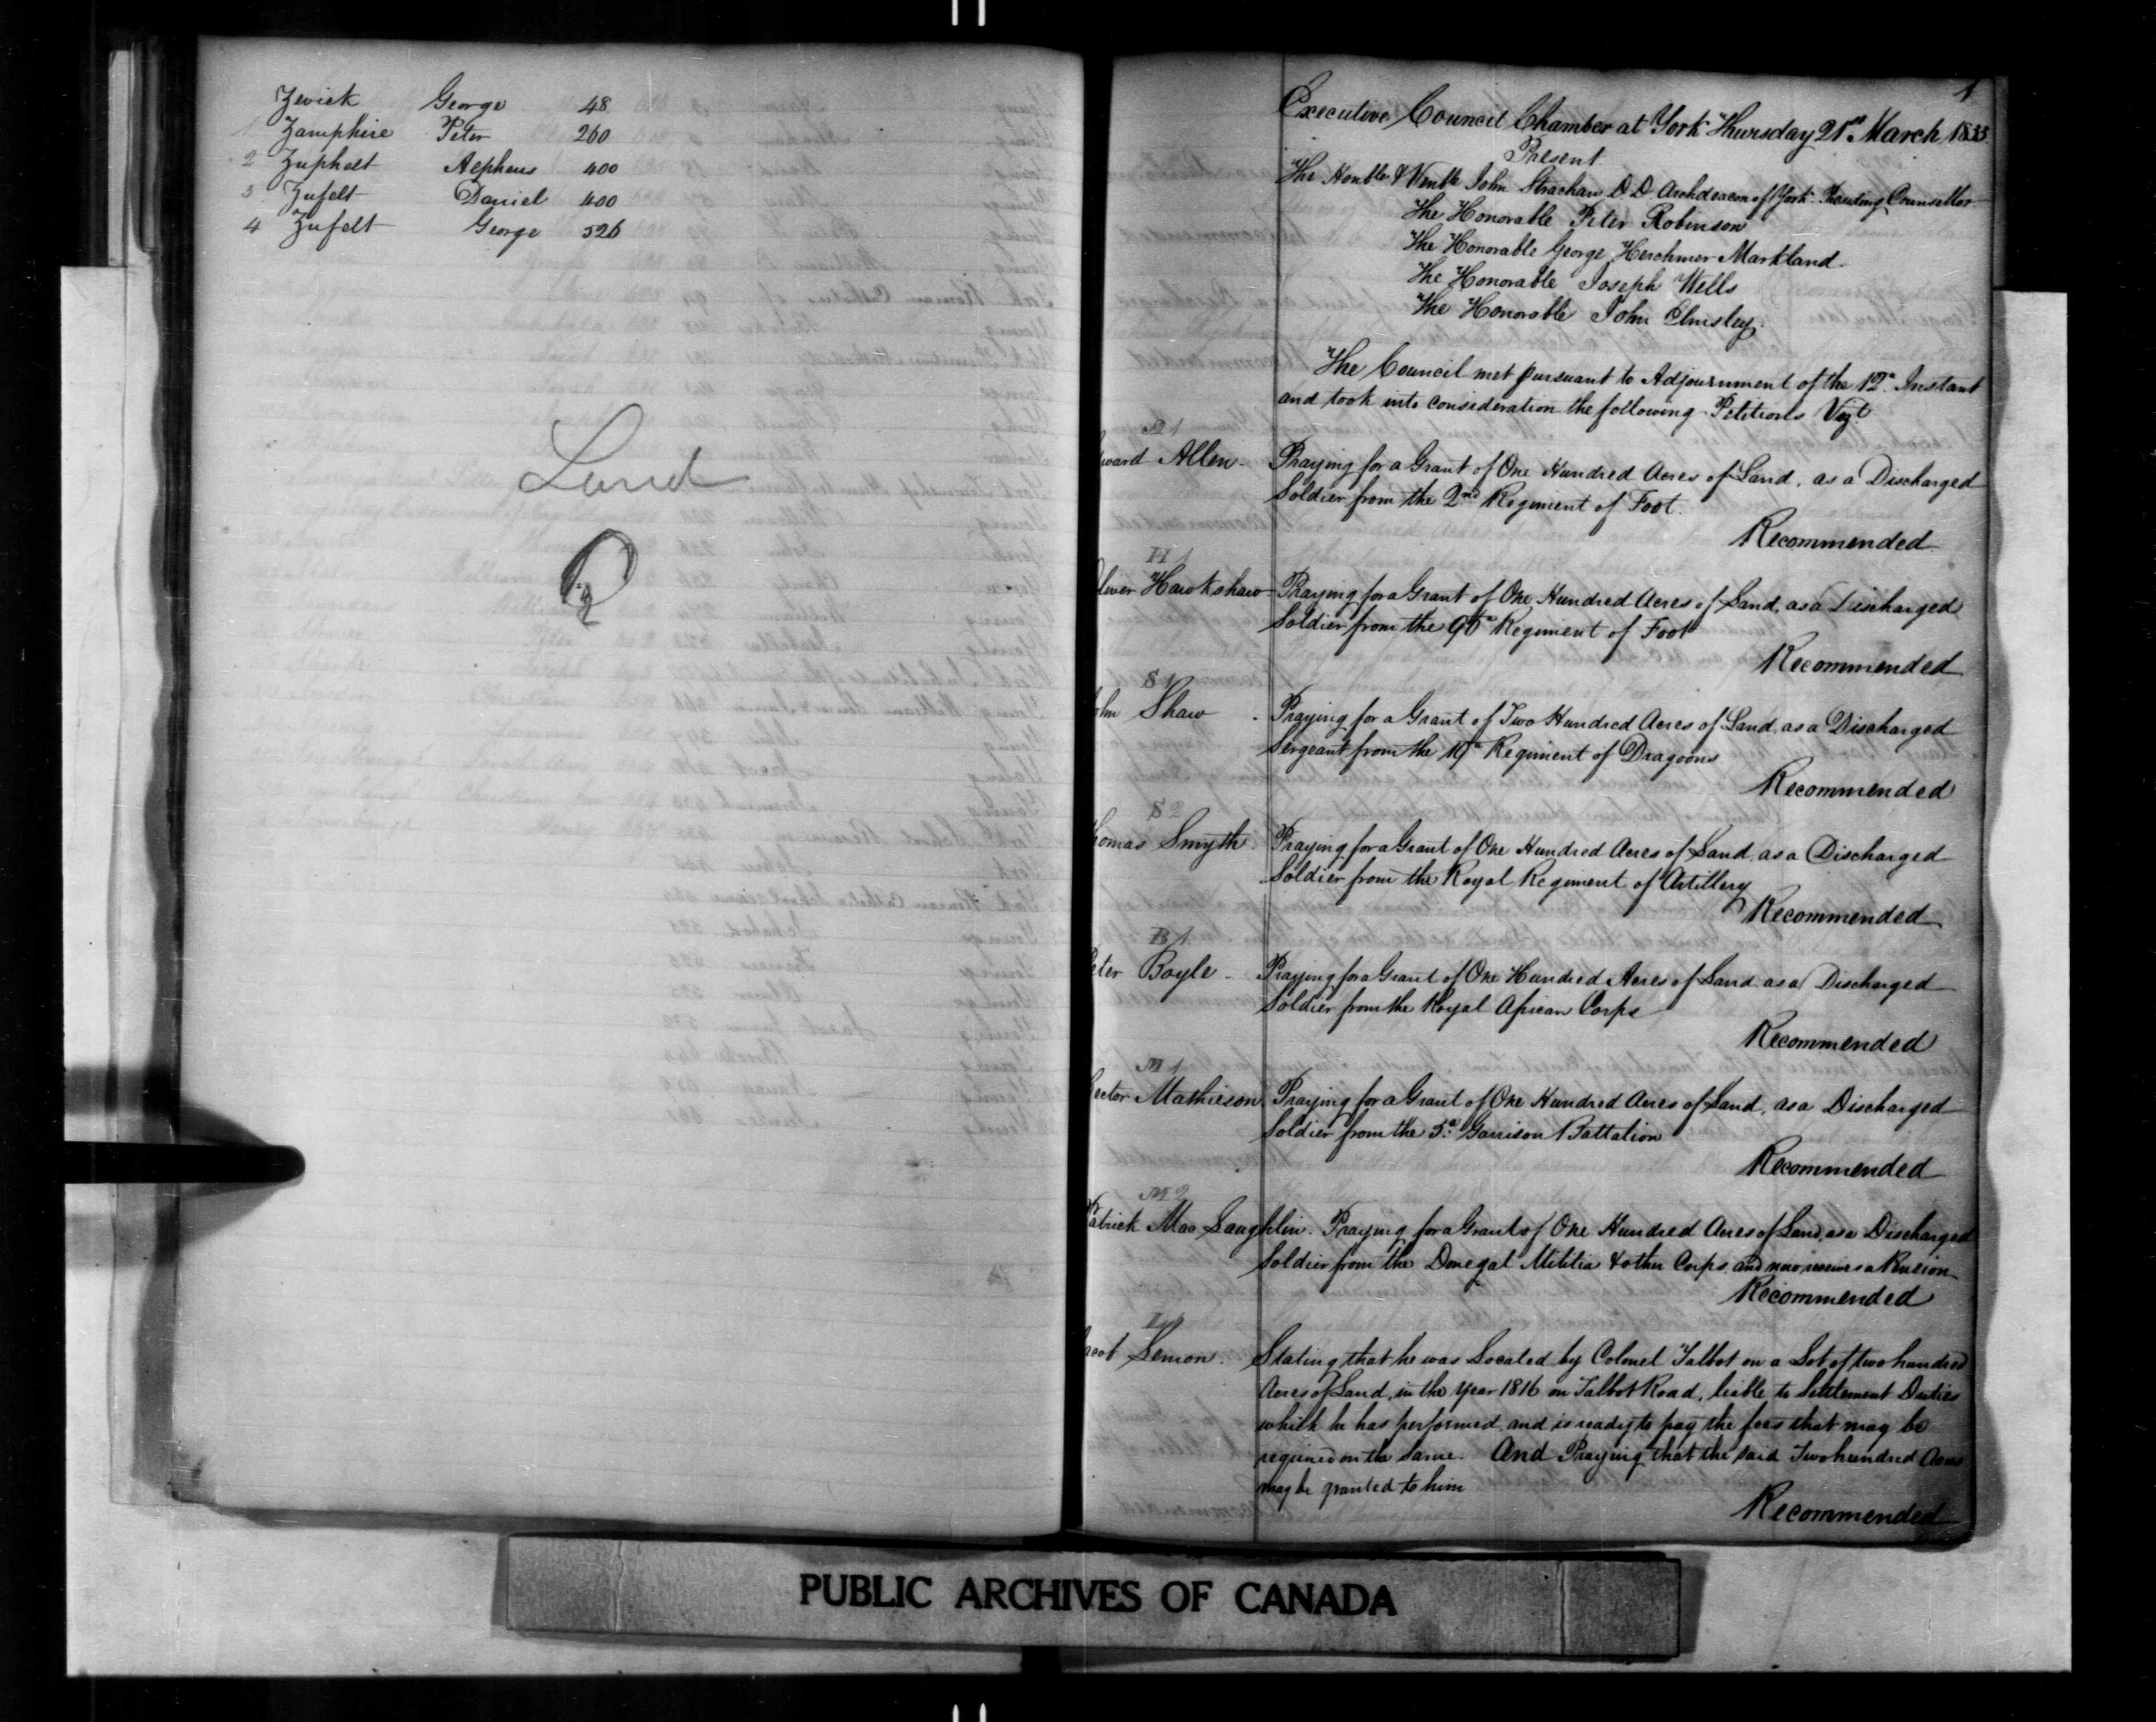 Zwick George 48
1 Zamphire Peter 260
2 Zuphelt Alpheus 400
3 Zufelt Daniel 400
4 Zufelt George 526
Land
1
Executive Council Chamber at York Thursday 21st March 1833
Present
The Honble & Venble John Strachan D D Archdeacon of York Presiding Counsellor
The Honorable Peter Robinson
The Honorable George Herchmer Markland
The Honorable Joseph Wells
The Honorable John Elmsley.
The Council met pursuant to Adjournment of the 12th Instant
and took into consideration the following Petitions Vizt
A 1
ward Allen - Praying for a Grant of One Hundred Acres of Land, as a Discharged
Soldier from the 2nd Regiment of Foot.
Recommended
H 1
liver Hawkshaw - Praying for a Grant of One Hundred Acres of Land, as a Discharged
Soldier from the Regiment of Foot
Recommended
S 1
ohn Shaw - Praying for a Grant of Two Hundred Acres of Land, as a Discharged
Sergeant from the 19th Regiment of Dragoons
Recommended
S 2
homas Smyth. Praying for a Grant of One Hundred Acres of Land, as a Discharged
Soldier from the Royal Regiment of Artillery
Recommended
B 1
eter Boyle - Praying for a Grant of One Hundred Acres of Land as a Discharged
Soldier from the Royal African Corps
Recommended
M 1
ector Mathieson. Praying for a Grant of One Hundred Acres of Land, as a Discharged
Soldier from the 5th Garrison Battalion
Recommended
M 2
Patrick Mac Laughlin. Praying for a Grant of One Hundred Acres of Land, as a Discharged
Soldier from the Donegal Militia & other Corps, and now receives a Pension
Recommended
L 1
acob Lemon. Stating that he was Located by Colonel Talbot on a Lot of two hundred
Acres of Land, in the year 1816 on Talbot Road, liable to Settlement Duties
which he has performed, and is ready to pay the fees that may be
required on the Same. And Praying that the said Two hundred Acres
may be granted to him
Recommended
PUBLIC ARCHIVES OF CANADA